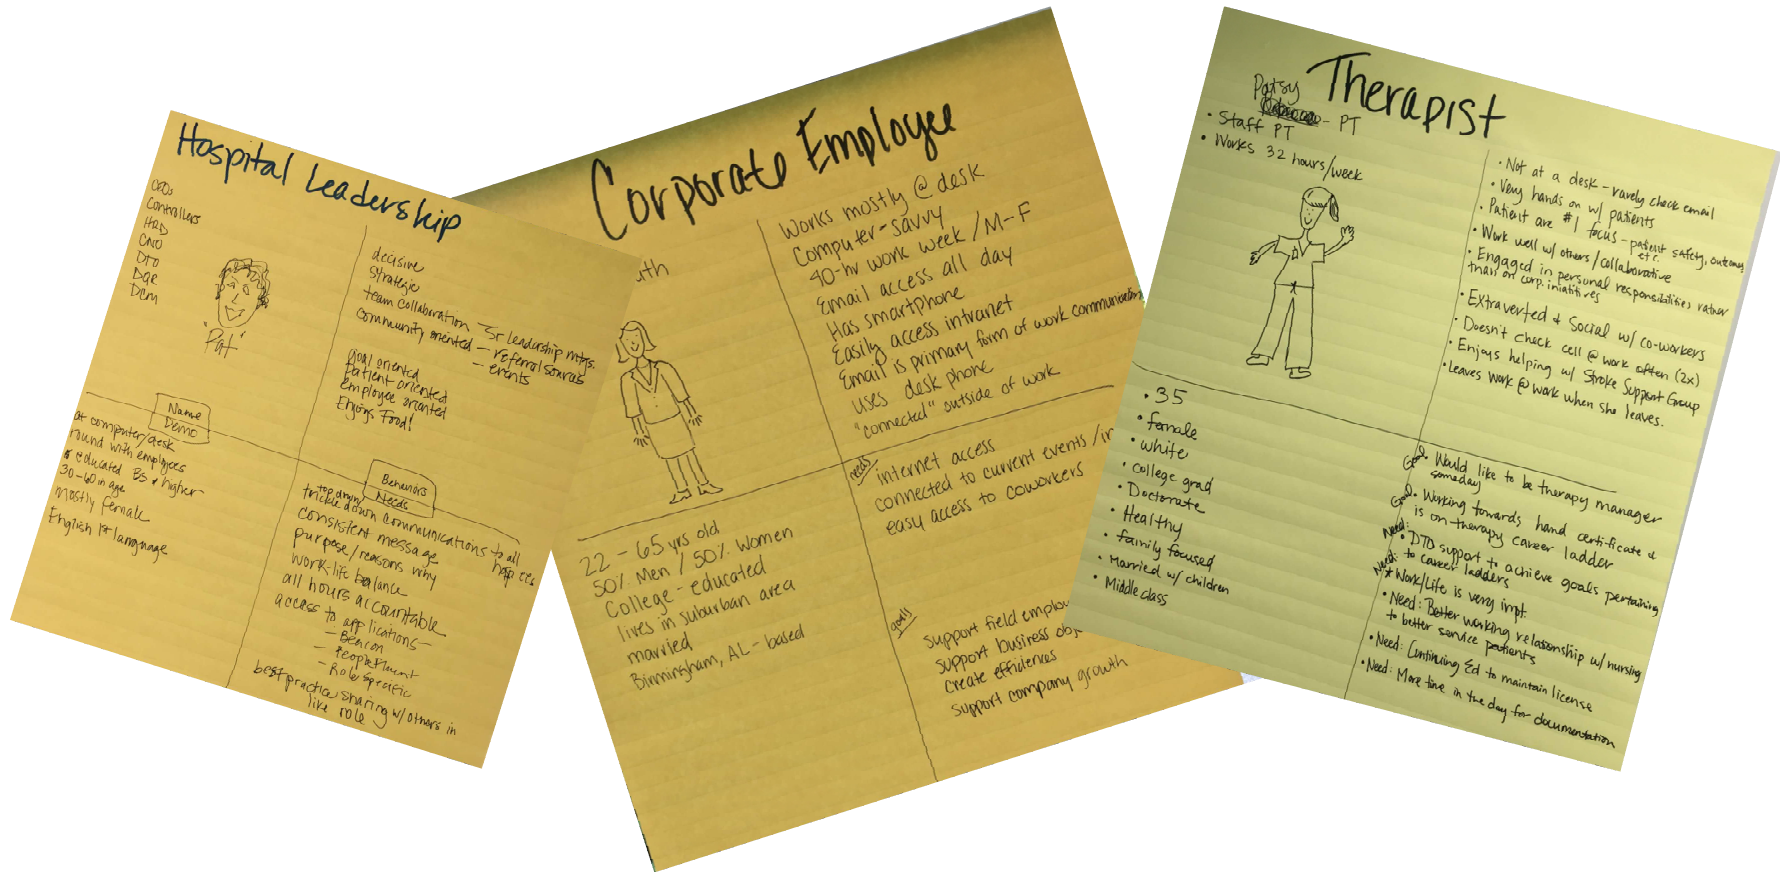 Hospital Leadership
CEOs
Controllers
HRD
CNO
DTO
DQR
Dcm
"Pat"
decisive
strategic
team collaboration - Sr Leadership mtgs.
community oriented - referral sources
- events
goal oriented
patient oriented
employee oriented
Enjoys Food!
Name
Demo
at computer/desk
round with employees
educated BS & higher
30-60 in age
mostly female
English 1st language
Behaviors
Needs
top down/
trickle down communications to all
hosp ees
consistent message
purpose/reasons why
work-life balance
all hours accountable
access to applications-
- Beacon
- PeopleFluent
- Role Specific
best practice sharing w/others in
like role
Corporate Employee
th
Works mostly @ desk
Computer-savvy
40-hr work week / M-F
Email access all day
Has smartphone
Easily access intranet
Email is primary form of work communication
uses desk phone
"connected" outside of work
needs
internet access
connected to current events /in
easy access to coworkers
22 - 65 yrs old
50% Men / 50% Women
College-educated
lives in suburban area
married
Birmingham, AL-based
goals
support field emplo
support business obj
create efficiencies
support company growth
Therapist
Patsy
- PT
• Staff PT
• Works 32 hours/week
• Not at a desk - rarely check email
• Very hands on w/ patients
• Patient are #1 focus - patient safety, outcomes,
etc.
• Work well w/ others/collaborative
• Engaged in personal responsibilities rather
than on corp. iniatitives
• Extraverted & Social w/ co-workers
• Doesn't check cell @ work often (2x)
• Enjoys helping w/ Stroke Support Group
• Leaves work @ work when she leaves.
• 35
• female
• white
• college grad
• Doctorate
• Healthy
• family focused
• Married w/ children
• Middle class
Goal: • Would like to be therapy manager
someday
Goal: • Working towards hand certificate &
is on therapy career ladder
Need: • DTO support to achieve goals pertaining
to career ladders
Need: * Work/Life is very impt.
• Need: Better working relationship w/ nursing
to better service patients
• Need: Continuing Ed to maintain license
• Need: More time in the day for documentation